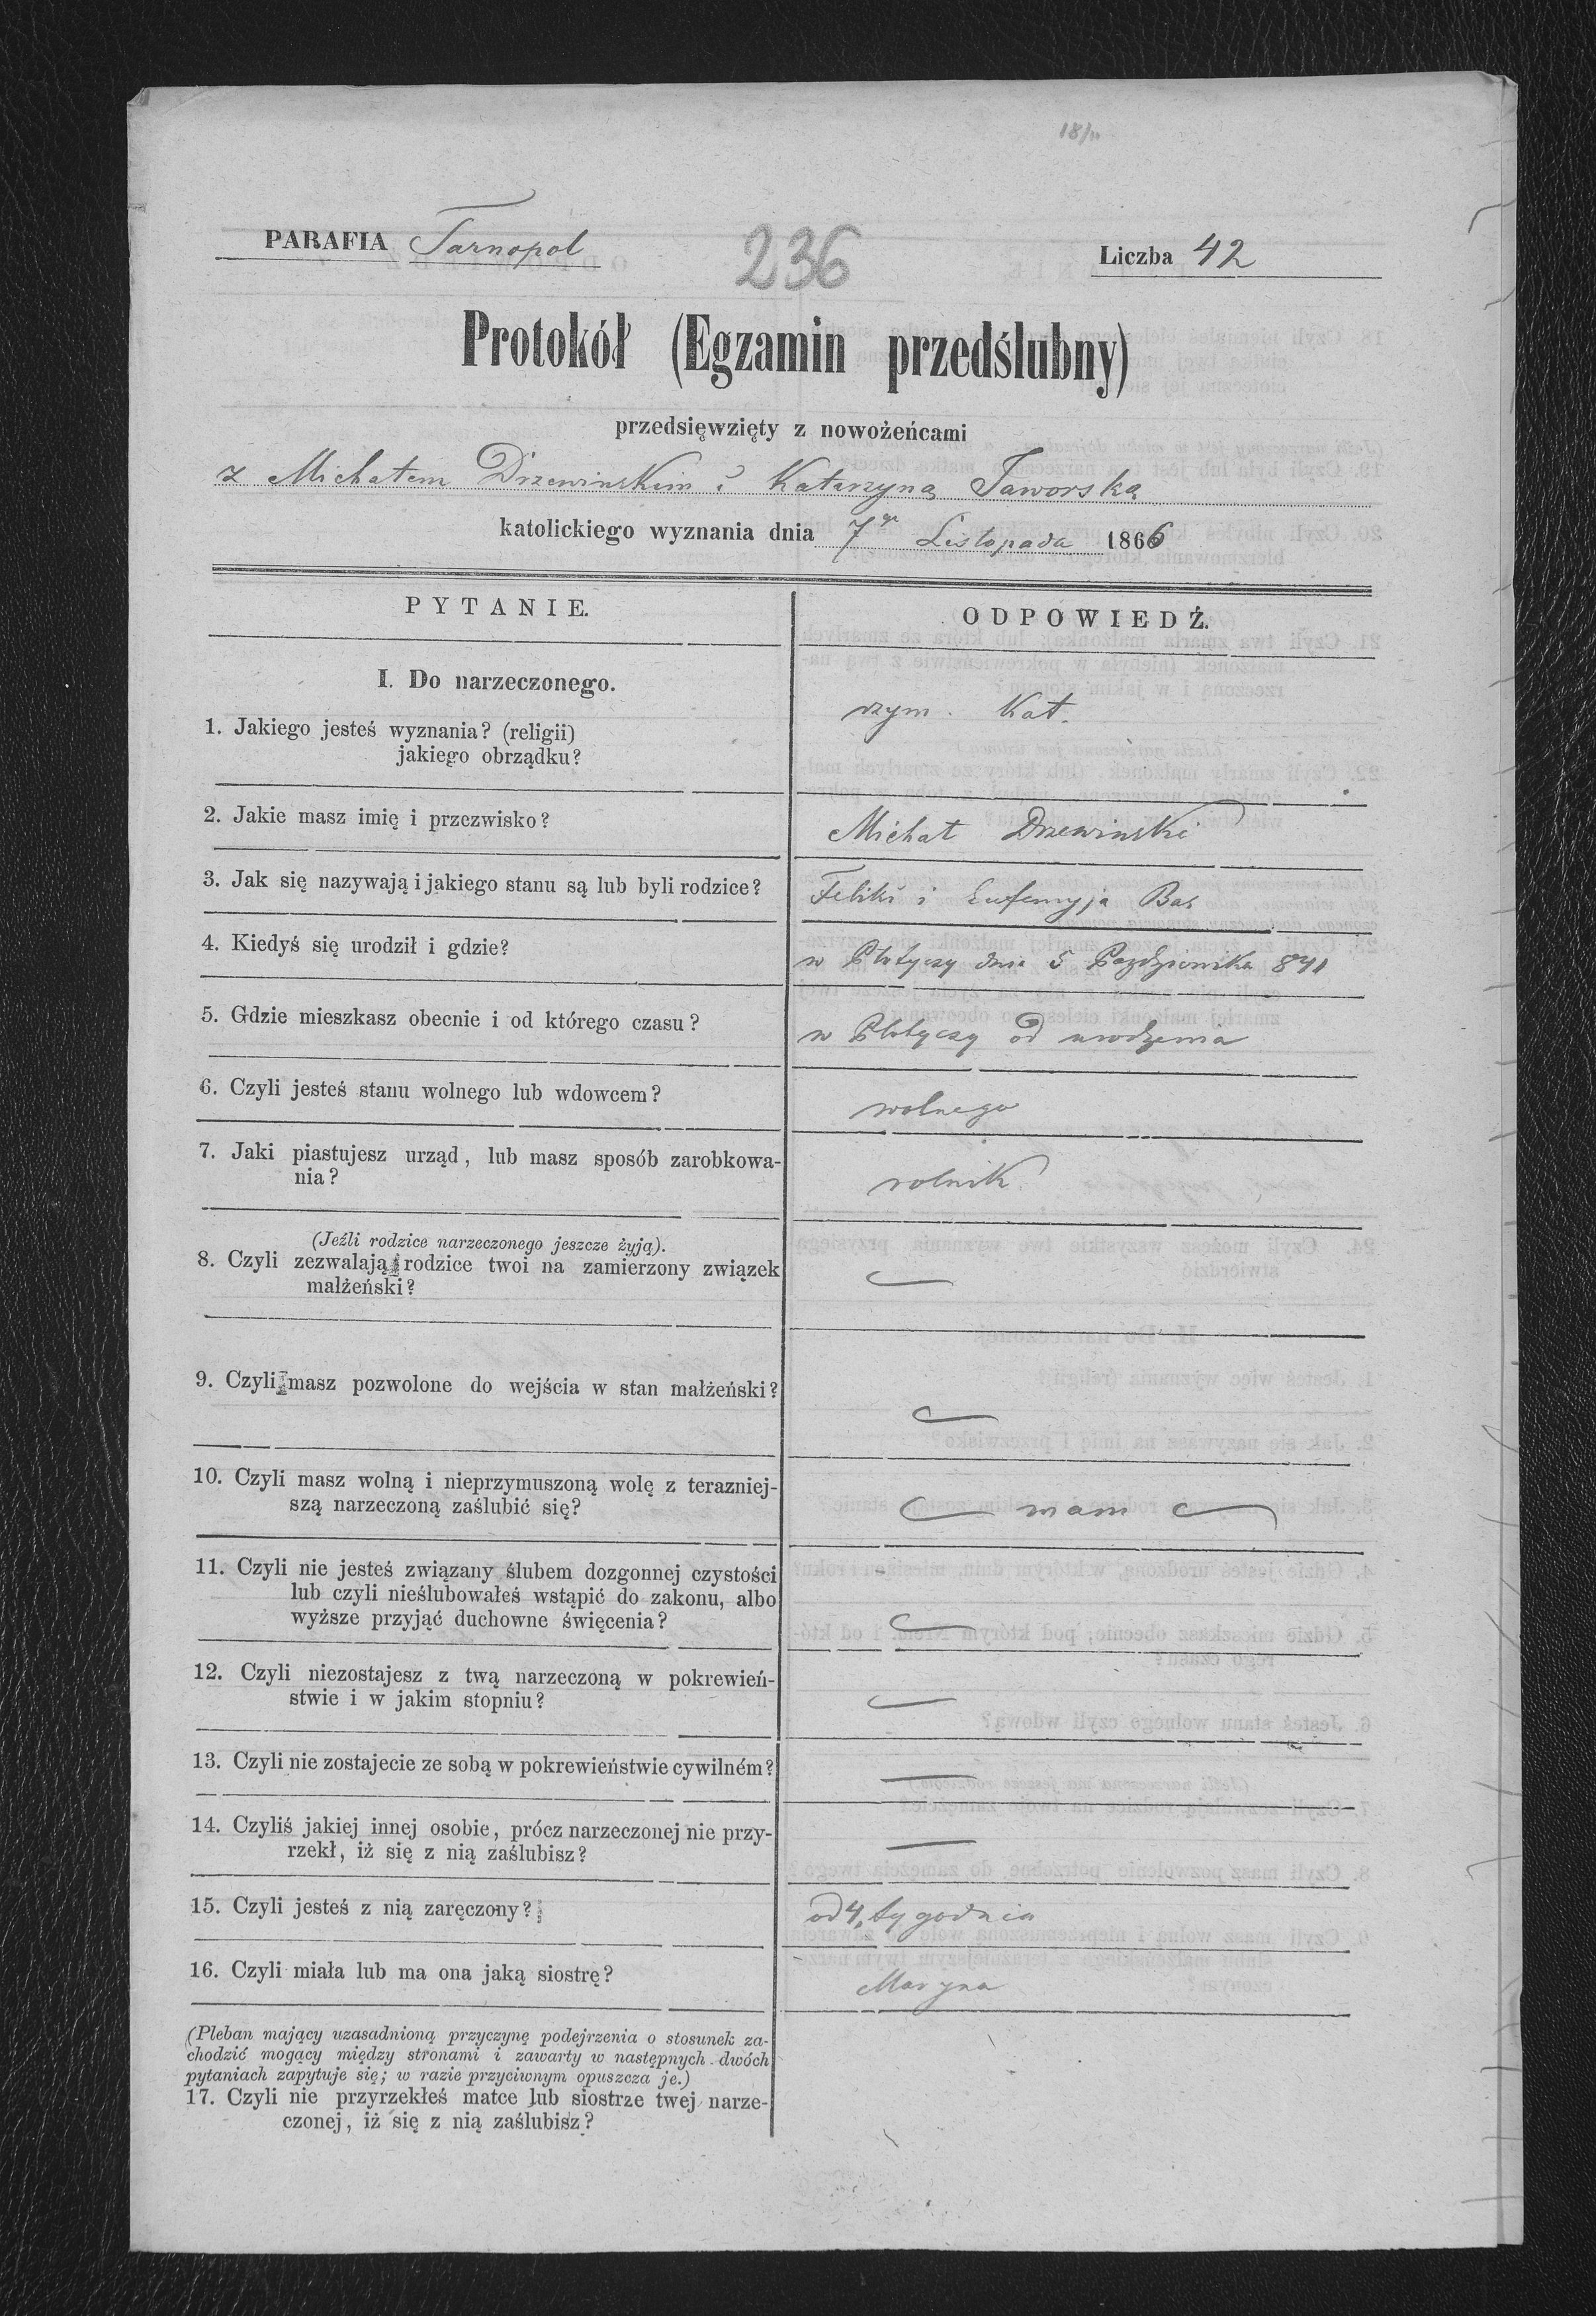 18/11
PARAFIA Tarnopol
236
Liczba 42
Protokół (Egzamin przedślubny)
przedsięwzięty z nowożeńcami
z Michałem Drzewinskim i Katarzyną Jaworską
katolickiego wyznania dnia 7go Listopada 1866
PYTANIE.
ODPOWIEDŹ.
I. Do narzeczonego.
1. Jakiego jesteś wyznania? (religii)
jakiego obrządku?
rzym. Kat.
2. Jakie masz imię i przezwisko?
Michał Drzewinski
3. Jak się nazywają i jakiego stanu są lub byli rodzice?
Feliks i Eufemyja Bas
4. Kiedyś się urodził i gdzie?
w Płotyczy dnia 5 Pazdziernika 841
5. Gdzie mieszkasz obecnie i od którego czasu?
w Płotyczy od urodzenia
6. Czyli jesteś stanu wolnego lub wdowcem?
wolnego
7. Jaki piastujesz urząd, lub masz sposób zarobkowa-
nia?
rolnik
(Jeźli rodzice narzeczonego jeszcze żyją).
8. Czyli zezwalają rodzice twoi na zamierzony związek
małżeński?
9. Czyli masz pozwolone do wejścia w stan małżeński?
10. Czyli masz wolną i nieprzymuszoną wolę z terazniej-
szą narzeczoną zaślubić się?
mam
11. Czyli nie jesteś związany ślubem dozgonnej czystości
lub czyli nieślubowałeś wstąpić do zakonu, albo
wyższe przyjąć duchowne święcenia?
12. Czyli niezostajesz z twą narzeczoną w pokrewień-
stwie i w jakim stopniu?
13. Czyli nie zostajecie ze sobą w pokrewieństwie cywilném?
14. Czyliś jakiej innej osobie, prócz narzeczonej nie przy-
rzekł, iż się z nią zaślubisz?
15. Czyli jesteś z nią zaręczony?
od 4, tygodnia
16. Czyli miała lub ma ona jaką siostrę?
Maryna
(Pleban mający uzasadnioną przyczynę podejrzenia o stosunek za-
chodzić mogący między stronami i zawarty w następnych dwóch
pytaniach zapytuje się; w razie przyciwnym opuszcza je.)
17. Czyli nie przyrzekłeś matce lub siostrze twej narze-
czonej, iż się z nią zaślubisz?